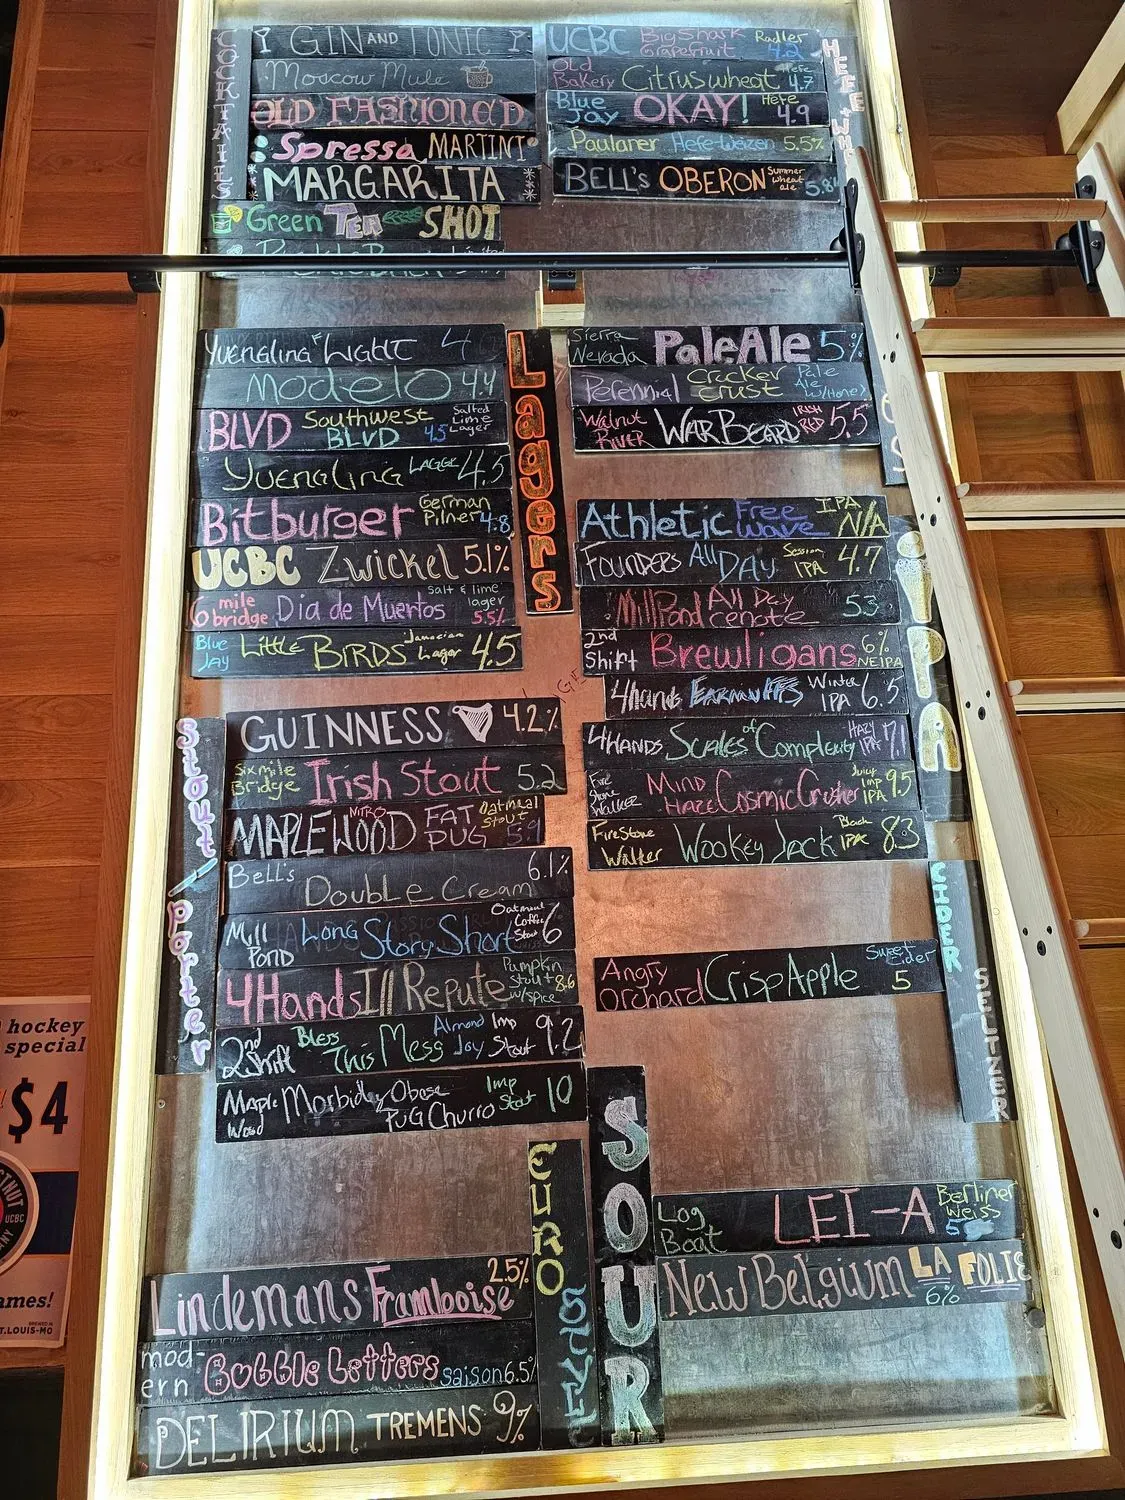 COCKTAILS
GIN AND TONIC
Moscow Mule
OLD FASHIONED
Spressa MARTINI
MARGARITA
Green TEA SHOT
UCBC Big Shark Grapefruit Radler 4.2
Old Bakery Citruswheat Hefe 4.7
Blue Jay OKAY! Hefe 4.9
Paulaner Hefe-Weizen 5.5%
BELL'S OBERON Summer wheat ale 5.8
HEFE
Lagers
Yuengling Flight 4.0
Modelo 4.4
BLVD Southwest BLVD 4.5 Salted Lime Lager
Yuengling LAGER 4.5
Bitburger German Pilner 4.8
UCBC Zwickel 5.1%
6 mile bridge Dia de Muertos salt & lime lager 5.5%
Blue Jay Little BIRDS Jamacian Lager 4.5
Sierra Nevada Pale Ale 5%
Perennial Cracker crust Pale Ale w/Honey
Walnut River WAR BEARD IRISH RED 5.5
IPA
Athletic Free wave IPA N/A
Founders All DAY Session IPA 4.7
Mill Pond All Day cenote 5.3
2nd Shift Brewligans 6% NEIPA
4hands EARMUFFS Winter IPA 6.5
4HANDS Scales of Complexity HAZY IPA 7.1
Fire Stone Walker MIND HAZE Cosmic Crusher Juicy Imp IPA 9.5
FireStone Walker Wookey Jack Black IPA 8.3
Stout/porter
GUINNESS 4.2%
Six mile Bridge Irish Stout 5.2
MAPLEWOOD NITRO FAT PUG Oatmeal Stout 5.9
Bells Double Cream 6.1%
Mill Pond Long Story Short Oatmeal Coffee Stout 6
4Hands Ill Repute Pumpkin Stout w/spice 8.6
2nd Shift Bless This Mess Almond Joy Imp Stout 9.2
Maple Wood Morbidly Obese PUG Churro Imp Stout 10
CIDER
SELTZER
Angry Orchard Crisp Apple Sweet Cider 5
EURO STYLE
Lindemans Framboise 2.5%
modern Bubble Letters saison 6.5%
DELIRIUM TREMENS 9%
SOUR
Log Boat LEI-A Berliner Weiss
New Belgium LA FOLIE 6%
hockey
special
$4
UCBC
ames!
T.LOUIS-MO